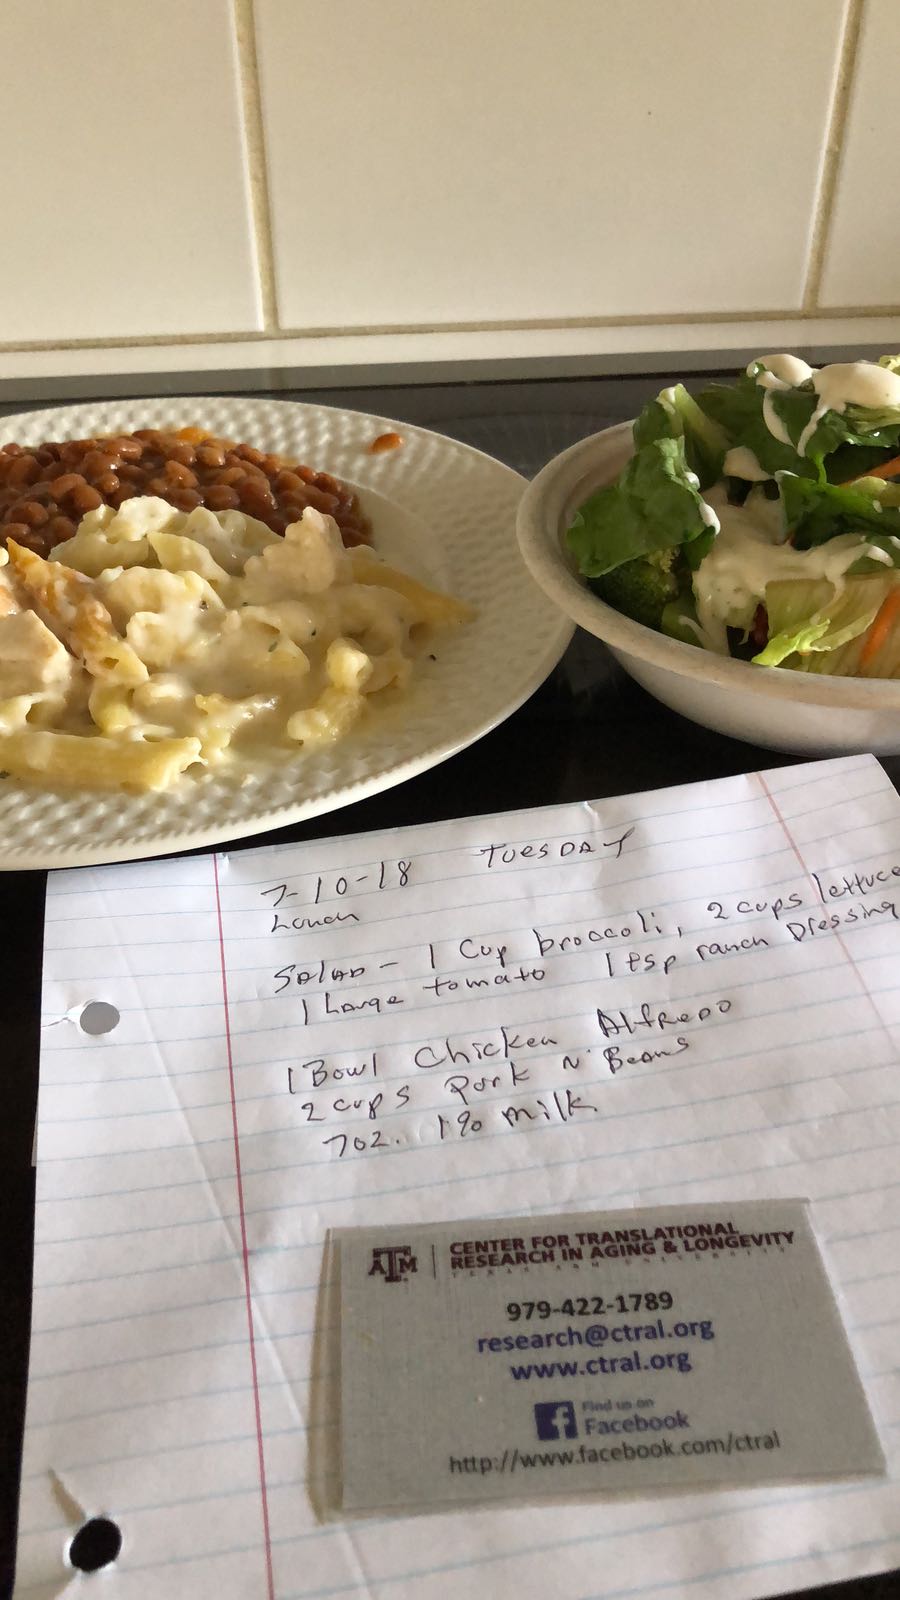 7-10-18 TUESDAY
Lunch
SALAD - 1 Cup broccoli, 2 cups lettuce
1 Large tomato 1 tsp ranch Dressing
1 Bowl Chicken Alfredo
2 cups Pork N' Beans
7oz. 1% milk
ATM CENTER FOR TRANSLATIONAL
RESEARCH IN AGING & LONGEVITY
TEXAS A&M UNIVERSITY
979-422-1789
research@ctral.org
www.ctral.org
f Find us on
Facebook
http://www.facebook.com/ctral